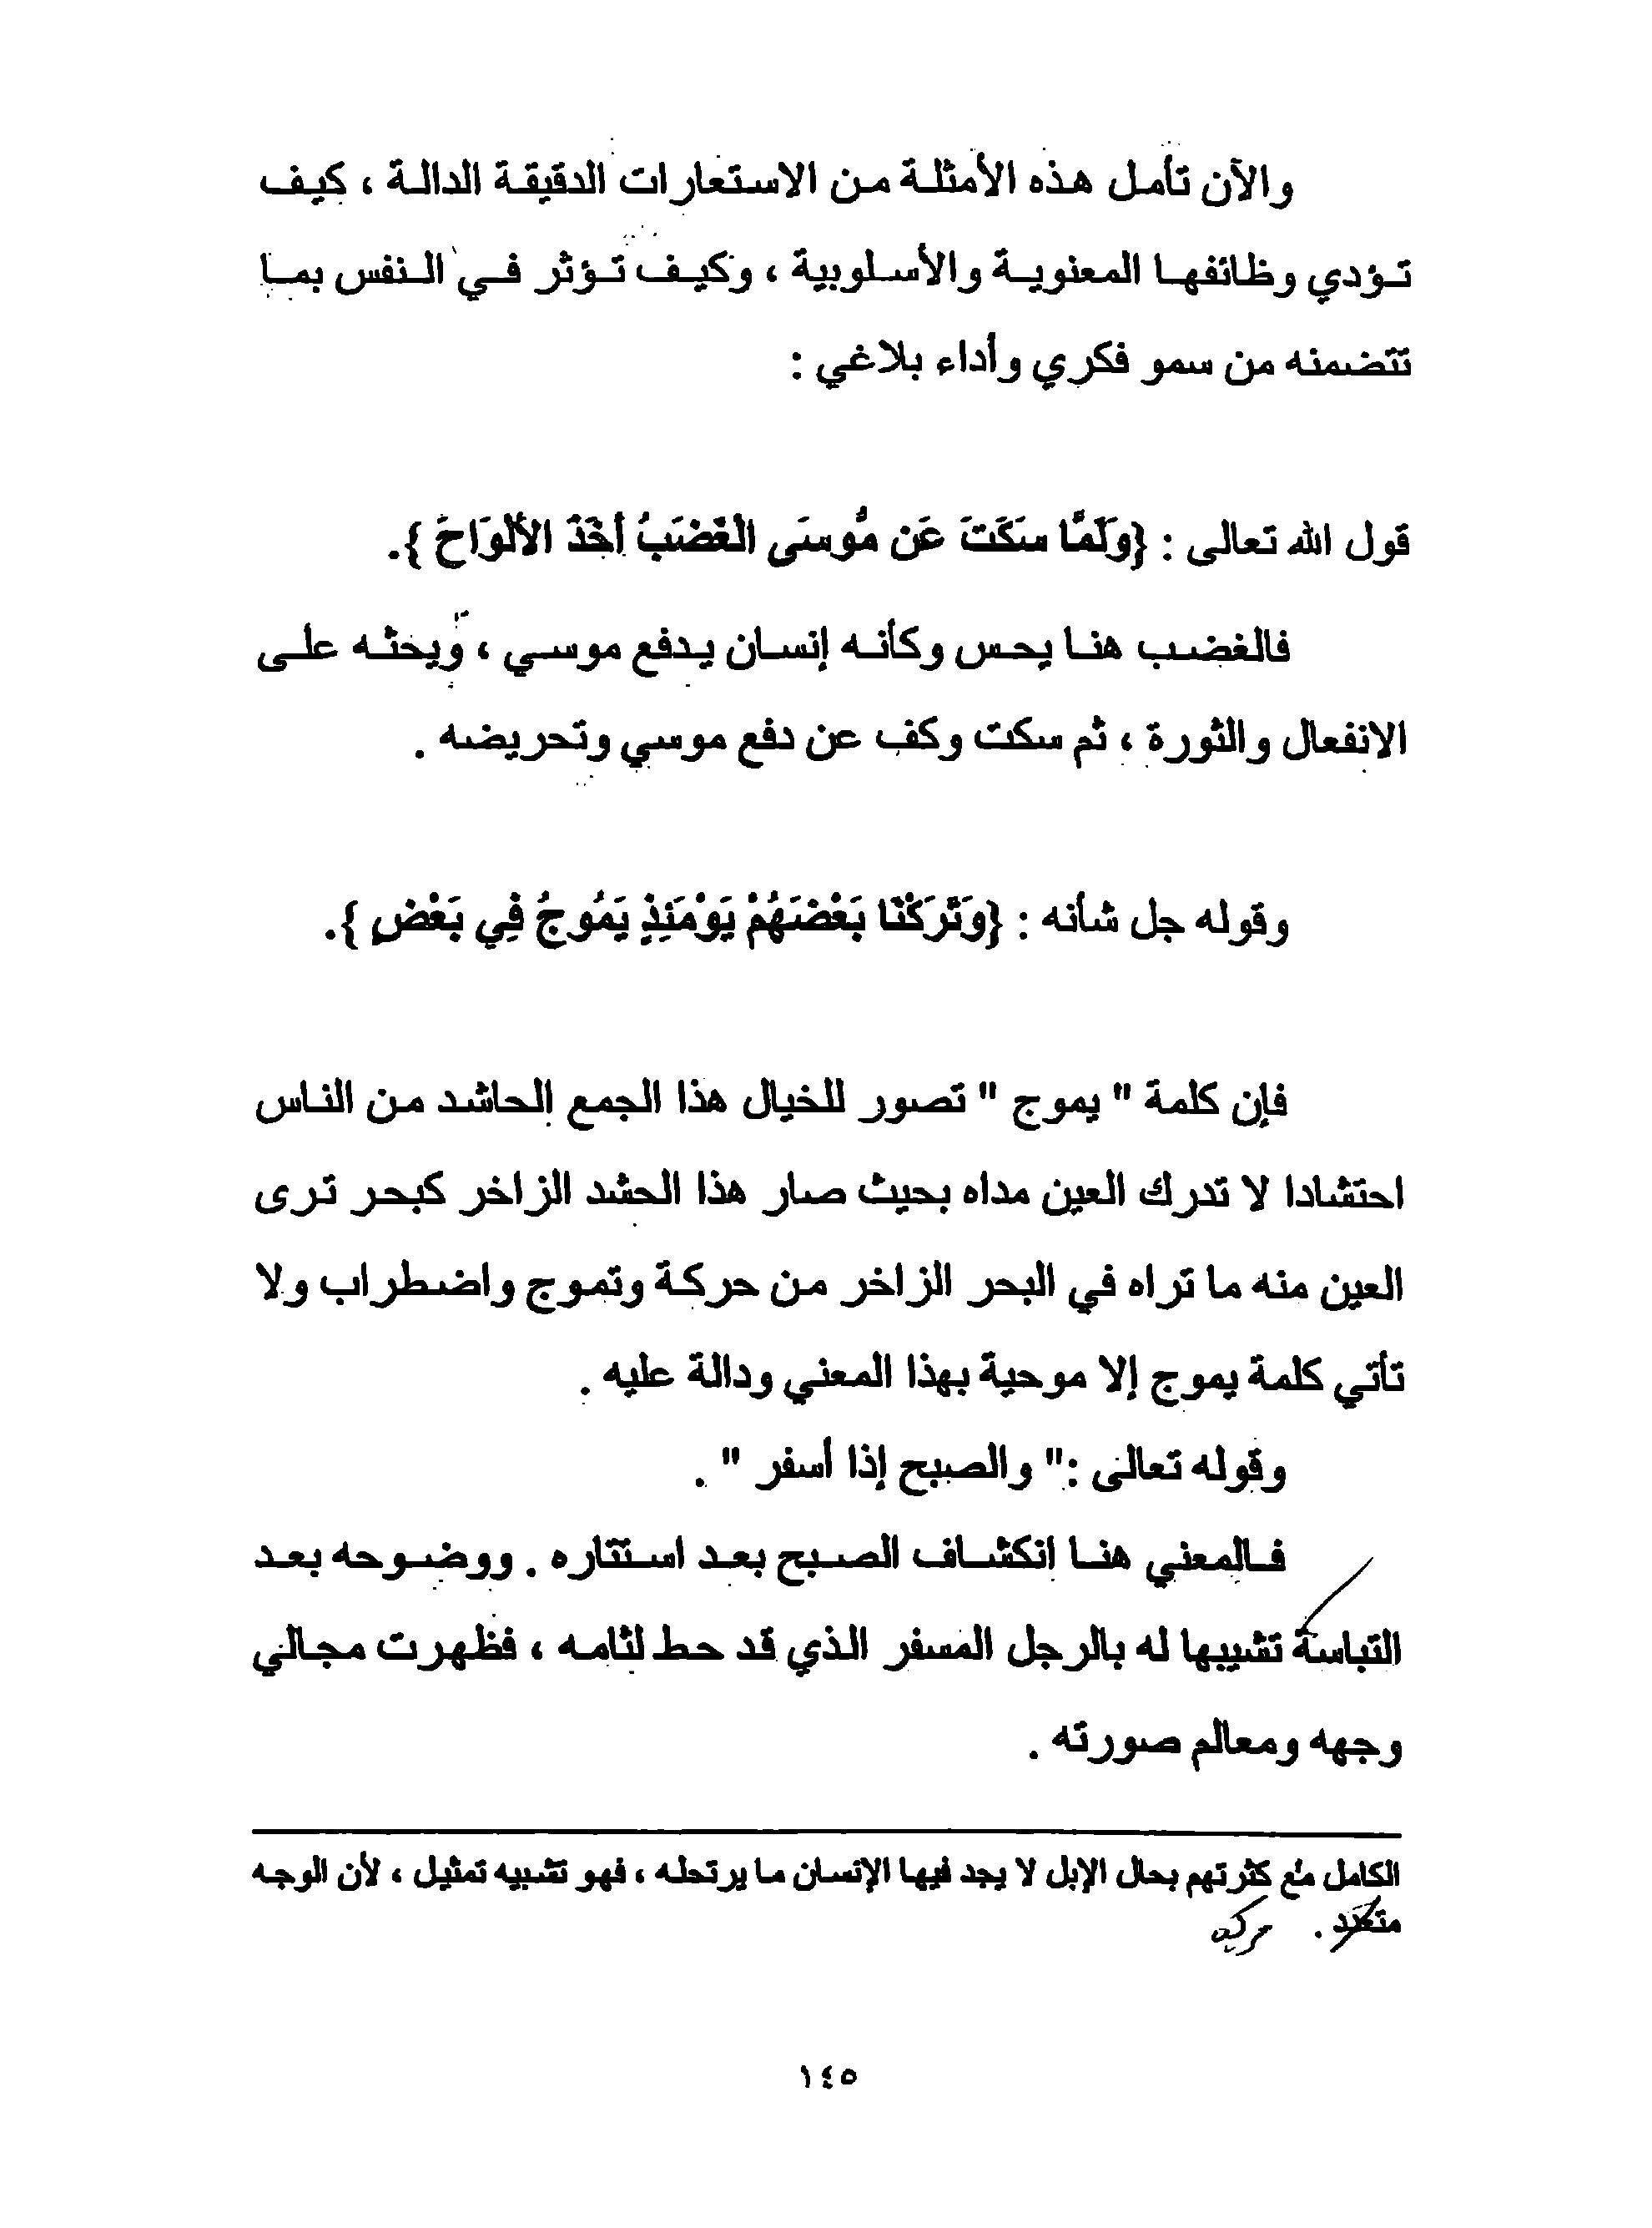 والآن تأمل هذه الأمثلة من الاستعارات الدقيقة الدالة ، كيف
تؤدي وظائفها المعنوية والأسلوبية ، وكيف تؤثر في النفس بما
تتضمنه من سمو فكري وأداء بلاغي :
قول الله تعالى : {وَلَمَّا سَكَتَ عَن مُّوسَى الْغَضَبُ أَخَذَ الأَلْوَاحَ }.
فالغضب هنا يحس وكأنه إنسان يدفع موسي ، ويحثه على
الانفعال والثورة ، ثم سكت وكف عن دفع موسي وتحريضه .
وقوله جل شأنه : {وَتَرَكْنَا بَعْضَهُمْ يَوْمَئِذٍ يَمُوجُ فِي بَعْضٍ }.
فإن كلمة " يموج " تصور للخيال هذا الجمع الحاشد من الناس
احتشادا لا تدرك العين مداه بحيث صار هذا الحشد الزاخر كبحر ترى
العين منه ما تراه في البحر الزاخر من حركة وتموج واضطراب ولا
تأتي كلمة يموج إلا موحية بهذا المعني ودالة عليه .
وقوله تعالى :" والصبح إذا أسفر " .
فالمعني هنا انكشاف الصبح بعد استتاره . ووضوحه بعد
التباسة تشبيها له بالرجل المسفر الذي قد حط لثامه ، فظهرت مجالي
وجهه ومعالم صورته .
الكامل مع كثرتهم بحال الإبل لا يجد فيها الإنسان ما يرتحله ، فهو تشبيه تمثيل ، لأن الوجه
متعدد .
١٤٥